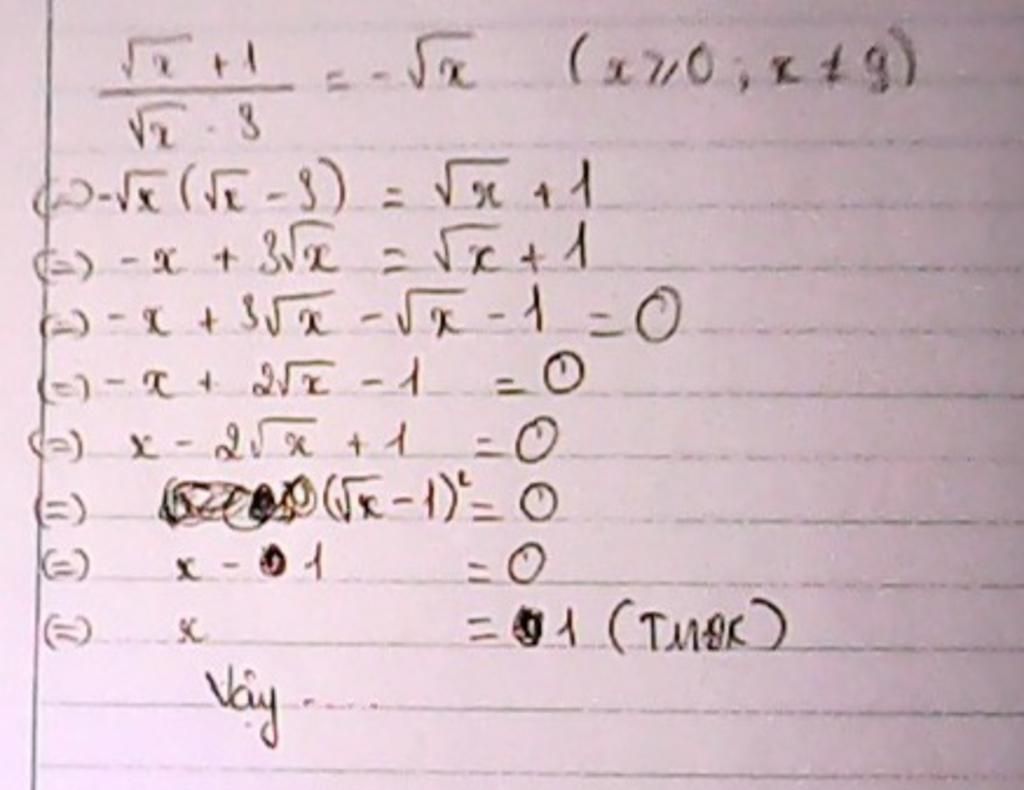 (√x + 1)/(√x - 3) = -√x (x ≥ 0 ; x ≠ 9)
(=) -√x (√x - 3) = √x + 1
(=) - x + 3√x = √x + 1
(=) - x + 3√x - √x - 1 = 0
(=) - x + 2√x - 1 = 0
(=) x - 2√x + 1 = 0
(=) (√x - 1)² = 0
(=) x - 1 = 0
(=) x = 1 (TMĐK)
Vậy .....